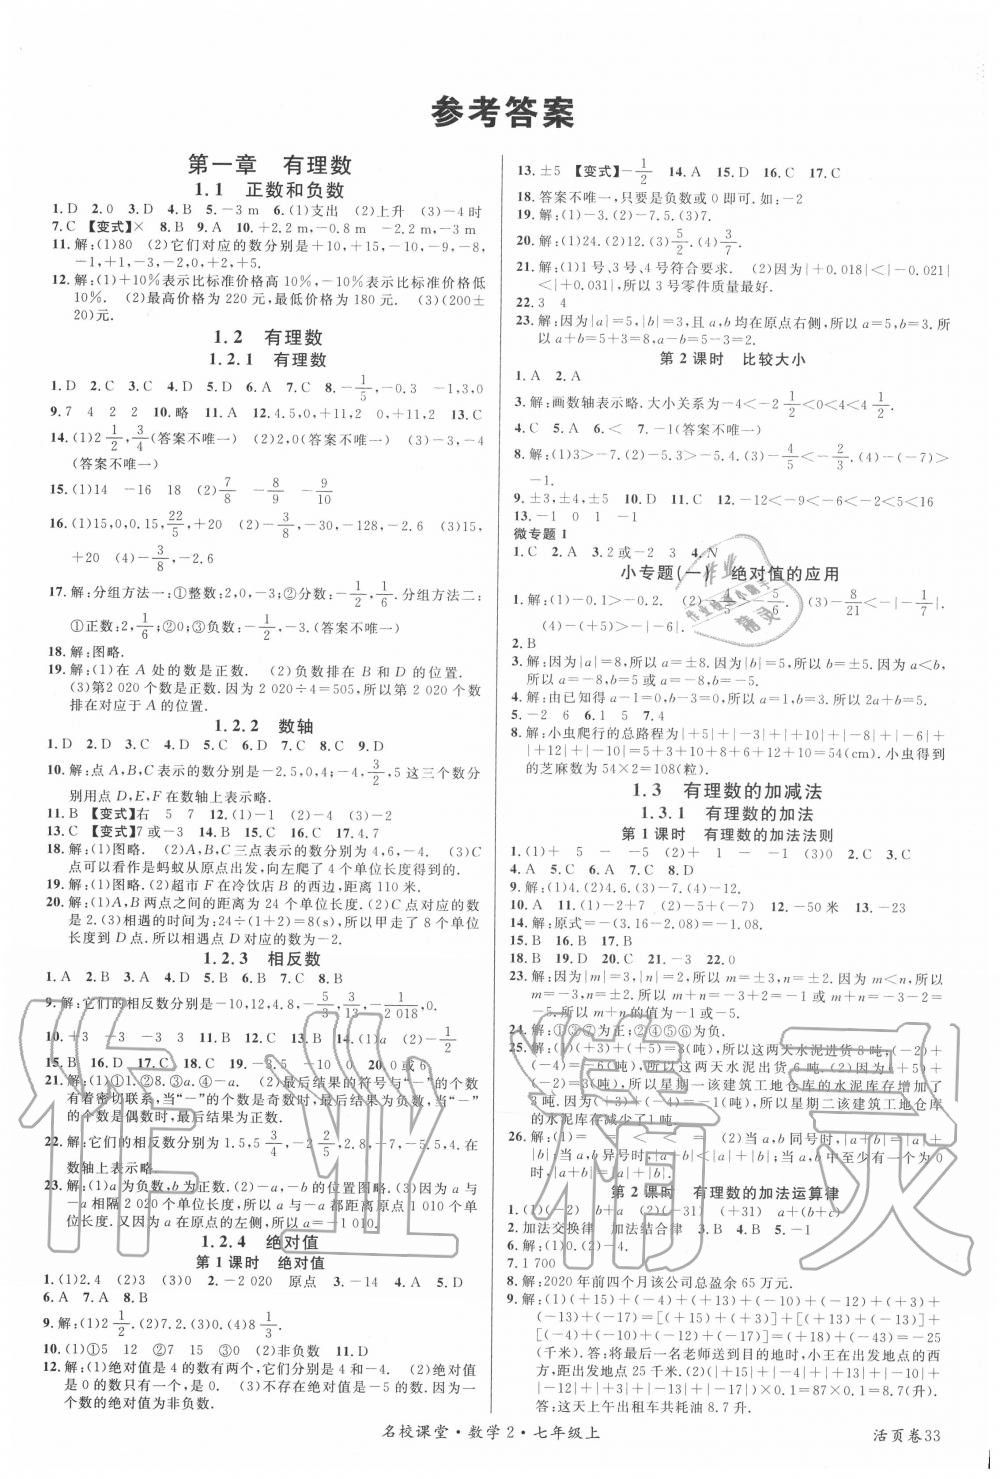 参考答案
第一章　有理数
1.1　正数和负数
1.D　2.0　3.D　4.B　5.－3 m　6.(1)支出　(2)上升　(3)－4时
7.C　【变式】×　8.B　9.A　10.＋2.2 m,－0.8 m　－2.2 m,－3 m
11.解:(1)80　(2)它们对应的数分别是＋10,＋15,－10,－9,－8,
－1,＋1,－3,－2,0,＋2,＋5.
12.解:(1)＋10%表示比标准价格高10%,－10%表示比标准价格低
10%.　(2)最高价格为220元,最低价格为180元.　(3)(200±
20)元.
1.2　有理数
1.2.1　有理数
1.D　2.C　3.C　4.D　5.D　6.A　7.C　8.－1/5,－0.3　－1,3,0
9.7　4　2　2　10.略　11.A　12.4.5,0,＋11,2　0,＋11,2　13.C
14.(1)2 1/2,3/4(答案不唯一)　(2)2,0(答案不唯一)　(3)－3,－4
(答案不唯一)
15.(1)14　－16　18　(2)7/8　－8/9　－9/10
16.(1)15,0,0.15,22/5,＋20　(2)－3/8,－30,－128,－2.6　(3)15,
＋20　(4)－3/8,－2.6
17.解:分组方法一:①整数:2,0,－3;②分数:－1/2,1/6.分组方法二:
①正数:2,1/6;②0;③负数:－1/2,－3.
18.解:图略.
19.解:(1)在A处的数是正数.　(2)负数排在B和D的位置.
(3)第2 020个数是正数.因为2 020÷4=505,所以第2 020个数
排在对应于A的位置.
1.2.2　数轴
1.D　2.D　3.C　4.C　5.C　6.C　7.D　8.C　9.D
10.解:点A,B,C表示的数分别是－2.5,0,4;－4,3/2,5这三个数分
别用点D,E,F在数轴上表示略.
11.B　【变式】右　5　7　12.(1)－1　(2)－4
13.C　【变式】7或－3　14.B　15.C　16.C　17.4.7
18.解:(1)图略.　(2)A,B,C三点表示的数分别为4,6,－4.　(3)C
点可以看作是蚂蚁从原点出发,向左爬了4个单位长度得到的.
19.解:(1)图略.(2)超市F在冷饮店B的西边,距离110米.
20.解:(1)A,B两点之间的距离为24个单位长度.(2)C点对应的数
是2.(3)相遇的时间为:24÷(1+2)=8(s),所以甲走了8个单位
长度到D点.所以相遇点D对应的数为－2.
1.2.3　相反数
1.A　2.B　3.D　4.D　5.D　6.B　7.C　8.B
9.解:它们的相反数分别是－10,12,4.8,－5/3,3/13,－1/2 018,0.
10.＋3　－3　－3　3　11.B　12.B　13.B　14.(1)a　(2)－1/2
15.B　16.D　17.C　18.C　19.－3.5　3.5　20.0或6
21.解:(1)①1.②8.③a.④－a.　(2)最后结果的符号与“－”的个数
有着密切联系,当“－”的个数是奇数时,最后结果为负数,当“－”
的个数是偶数时,最后结果为正数.
22.解:它们的相反数分别为1.5,5 3/4,－2 2/5,2.8,＋7,－5.5,在
数轴上表示略.
23.解:(1)a为负数,b为正数.(2)－a,－b的位置图略.(3)因为a与
－a相隔2 020个单位长度,所以a与－a都距离原点1 010个单
位长度.又因为a在原点的左侧,所以a=－1 010.
1.2.4　绝对值
第1课时　绝对值
1.(1)2,4　(2)3　(3)0　2.－2 020　原点　3.－4　4.A　5.A
6.A　7.A　8.B
9.解:(1)2 1/2.(2)7.2.(3)0.(4)8 1/3.
10.(1)①5　12　②7　15　③0　(2)非负数　11.D
12.解:(1)绝对值是4的数有两个,它们分别是4和－4.　(2)绝对值
是0的数只有一个,是0.　(3)不存在绝对值是－5的数.因为一
个数的绝对值为非负数.
13.±5　【变式】－1/2　14.A　15.D　16.C　17.C
18.答案不唯一,只要是负数或0即可.如:－2
19.解:(1)－3.(2)－7.5.(3)7.
20.解:(1)24.(2)12.(3)5/2.(4)3/7.
21.解:(1)1号、3号、4号符合要求.　(2)因为|＋0.018|<|－0.021|
<|＋0.031|,所以3号零件质量最好.
22.3　4
23.解:因为|a|=5,|b|=3,且a,b均在原点右侧,所以a=5,b=3.所
以a+b=5+3=8,a－b=5－3=2.
第2课时　比较大小
1.A　2.A
3.解:画数轴表示略.大小关系为－4<－2 1/2<0<4<4 1/2.
4.C　5.A　6.<　7.－1(答案不唯一)
8.解:(1)3>－7.　(2)－5.3>－5.4.　(3)－4/5<－2/3.　(4)－(－7)>
－1.
9.±3,±4,±5　10.D　11.C　12.－12<－9<－6<－2<5<16
13.－1　0　1　－1
微专题1
1.C　2.A　3.2或－2　3　4.N
小专题(一)　绝对值的应用
1.解:(1)－0.1>－0.2.　(2)－4/5>－5/6.　(3)－8/21<－|－1/7|.
(4)－(－6)>－|－6|.
2.B
3.解:因为|a|=8,所以a=±8.因为|b|=5,所以b=±5.因为a<b,
所以a=－8,b=5或a=－8,b=－5.
4.解:由已知得a－1=0,b－3=0,所以a=1,b=3.所以2a+b=5.
5.－2　6　6.1　5　7.4
8.解:小虫爬行的总路程为|＋5|＋|－3|＋|＋10|＋|－8|＋|－6|＋
|＋12|＋|－10|=5+3+10+8+6+12+10=54(cm).小虫得到
的芝麻数为54×2=108(粒).
1.3　有理数的加减法
1.3.1　有理数的加法
第1课时　有理数的加法法则
1.(1)＋　5　－　5　－5　(2)＋　1　－　1　(3)0　2.C　3.C　4.A
9.解:(1)4.(2)4.(3)－1.(4)－1.
10.A　11.(1)－2＋7　(2)－5＋(－7)　12.－50米　13.－23
14.解:原式=－(3.16－2.08)=－1.08.
15.B　16.B　17.B　18.D　19.B　20.C　21.－3　22.0
23.解:因为|m|=3,|n|=2,所以m=±3,n=±2.因为m<n,所以
m=－3,n=2或m=－3,n=－2.所以m+n=－1或m+n=－5.
所以m+n的值为－1或－5.
24.解:①②③为正;②④⑤⑥为负.
第2课时　有理数的加法运算律
1.(1)(－2)　b+a　(2)(－31)　(＋31)　a+(b+c)
2.加法交换律　加法结合律　3.B　4.B　5.－1
6.解:(1)0.(2)－4.
7.1 700
8.解:2020年前四个月该公司总盈余65万元.
9.解:(1)(＋15)＋(－4)＋(＋13)＋(－10)＋(－12)＋(＋3)＋
(－13)＋(－17)=[(＋15)＋(＋13)＋(＋3)]＋[(－4)＋(－10)＋
(－12)＋(－13)＋(－17)]=(＋31)＋(－56)=－25
(千米).答:将最后一名老师送到目的地时,小王在出发地点的西
方,距出发地点25千米.
答:这天上午出租车共耗油8.7升.
名校课堂·数学2·七年级上
活页卷33